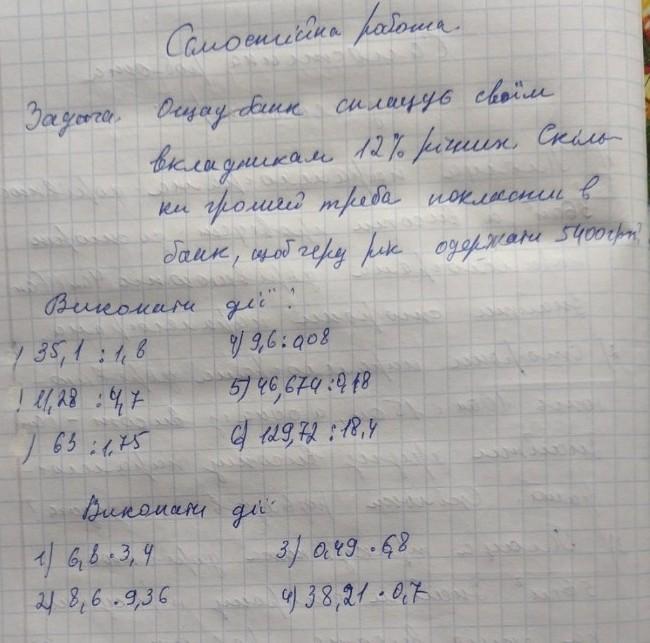 Самостійна робота.
Задача. Ощадбанк сплачує своїм
вкладникам 12% річних. Скіль-
ки грошей треба покласти в
банк, щоб через рік одержати 5400грн?
Виконати дії:
) 35,1 : 1,8 4) 9,6 : 0,08
) 11,28 : 4,7 5) 46,674 : 0,18
) 63 : 1,75 6) 129,72 : 18,4
Виконати дії
1) 6,8 · 3,4 3) 0,49 · 6,8
2) 8,6 · 9,36 4) 38,21 · 0,7